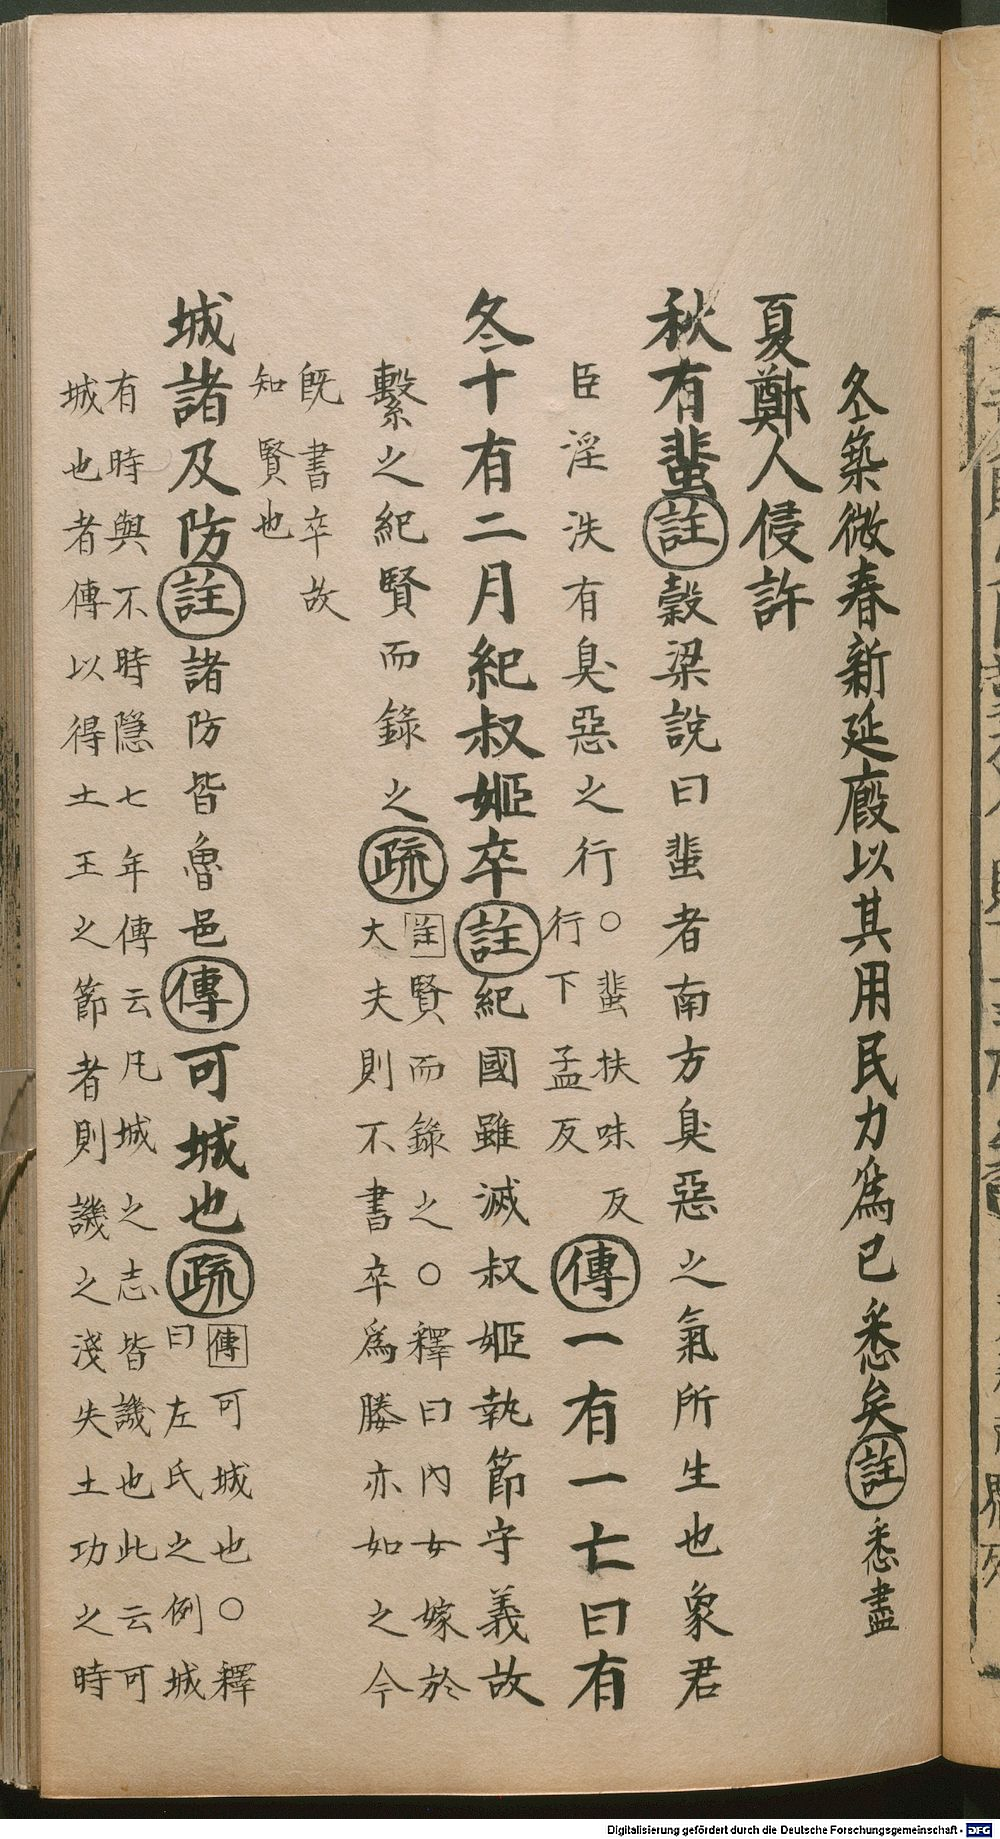 冬築微春新延廏以其用民力爲已悉矣註悉盡
夏鄭人侵許
秋有蜚註穀梁說曰蜚者南方臭惡之氣所生也象君
臣淫泆有臭惡之行○蜚扶味反
行下孟反
傳一有一亡曰有
冬十有二月紀叔姬卒註紀國雖滅叔姬執節守義故
繫之紀賢而錄之疏
註賢而錄之○釋曰內女嫁於
大夫則不書卒爲媵亦如之今
既書卒故
知賢也
城諸及防註諸防皆魯邑傳可城也疏
傳可城也○釋
曰左氏之例城
有時與不時隱七年傳云凡城之志皆譏也此云可
城也者傳以得土王之節者則譏之淺失土功之時
Digitalisierung gefördert durch die Deutsche Forschungsgemeinschaft - DFG